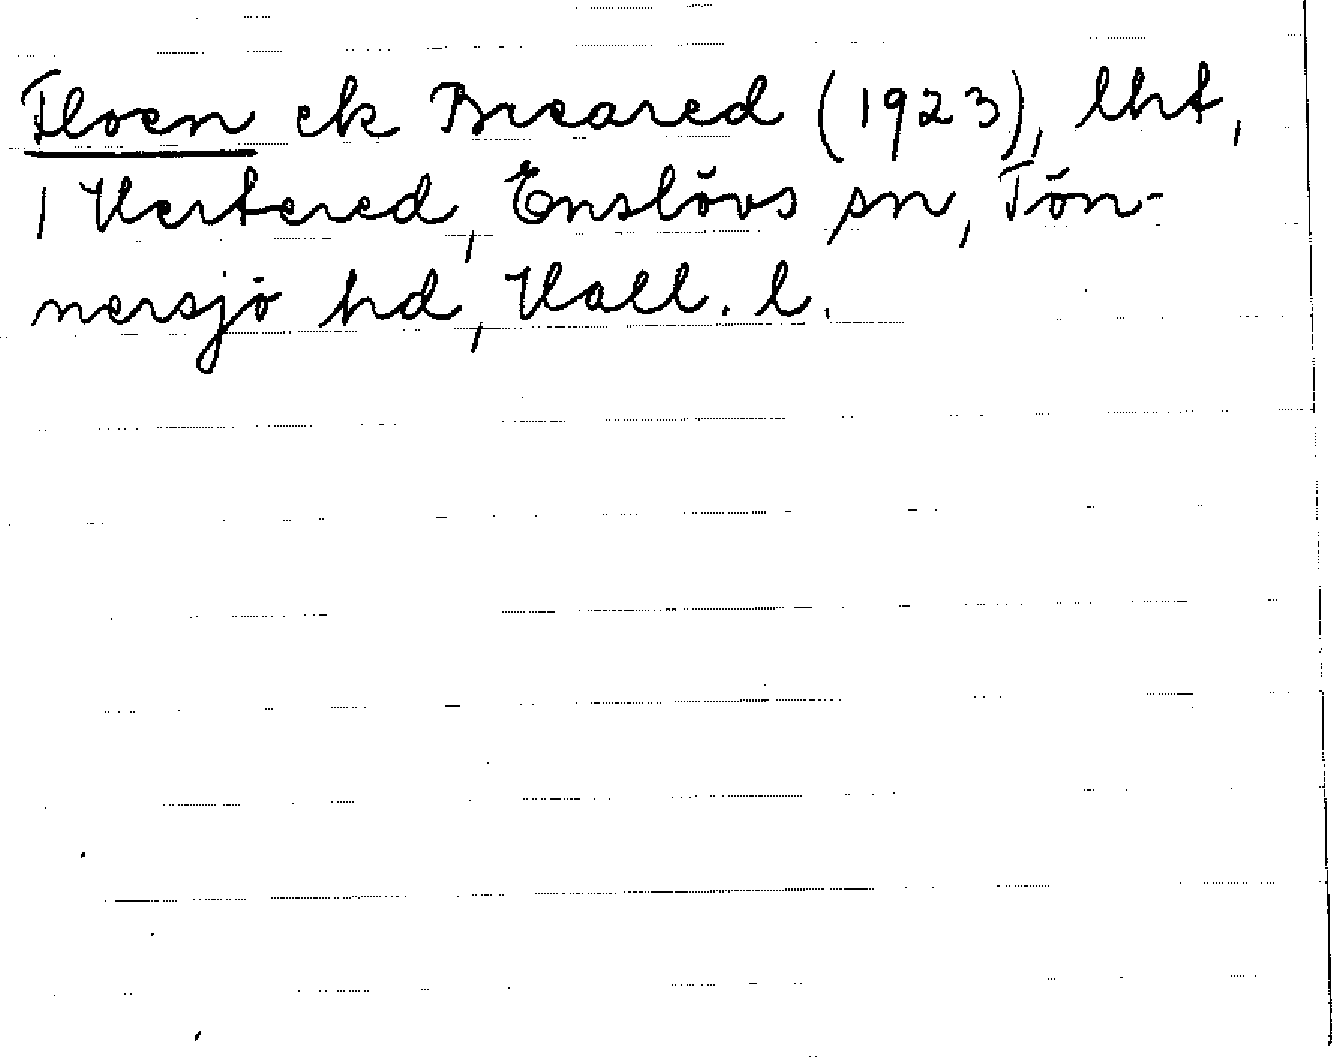 Floen ek Breared (1923), lht,
1 Hertered, Enslövs sn, Tön-
nersjö hd, Hall. l.